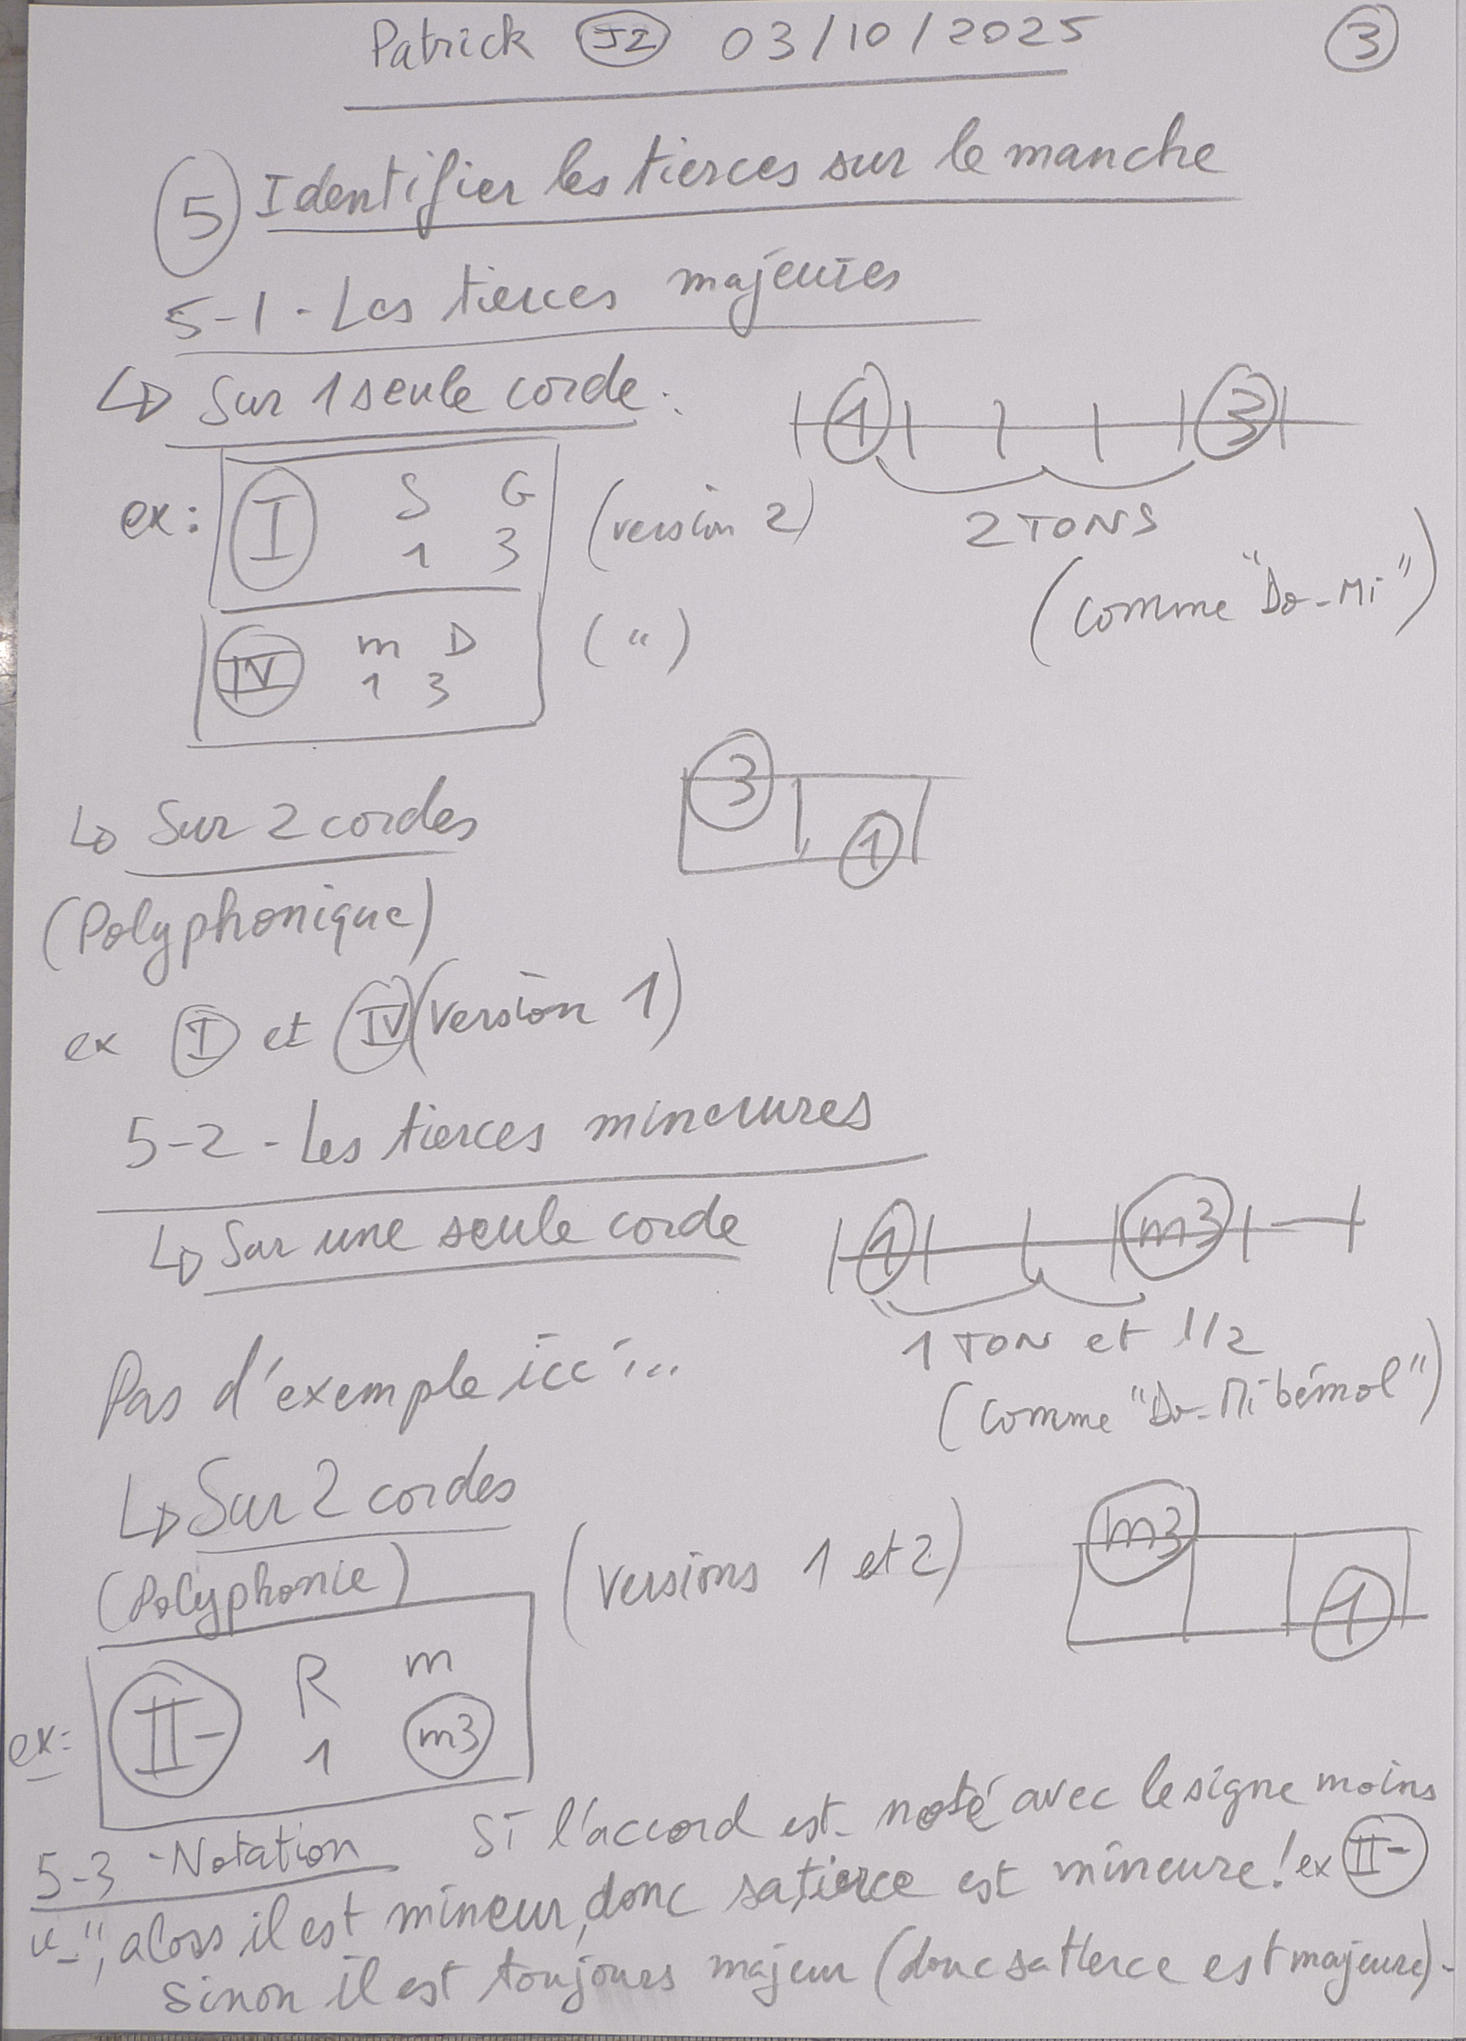 Patrick J2 03/10/2025 3
5 Identifier les tierces sur le manche
5-1 - Les tierces majeures
↳ Sur 1 seule corde :
1 3
ex: I S G (version 2)
1 3
2 TONS
(comme "Do-Mi")
IV m D (")
1 3
↳ Sur 2 cordes
3
1
(Polyphonique)
ex I et IV (version 1)
5-2 - Les tierces mineures
↳ Sur une seule corde
1 m3
1 TON et 1/2
(comme "Do-Mi bémol")
Pas d'exemple ici...
↳ Sur 2 cordes
(Polyphonie) (versions 1 et 2)
m3
1
ex: II- R m
1 m3
5-3 - Notation Si l'accord est noté avec le signe moins
"-", alors il est mineur, donc sa tierce est mineure! ex II-
Sinon il est toujours majeur (donc sa tierce est majeure).